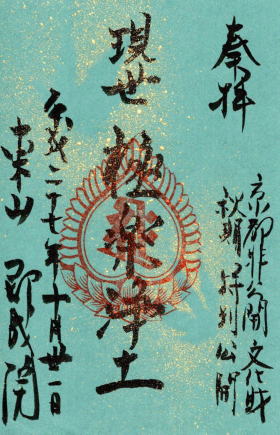 奉拝
京都非公開文化財
秋期特別公開
現世極楽浄土
平成二十七年十月廿一日
東山 即成院